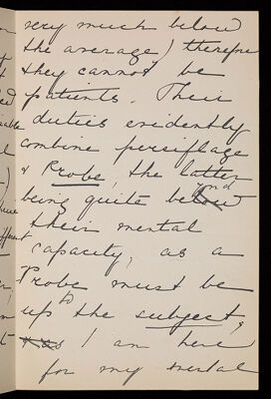 very much below
the average) therefore
they cannot be
patients. Their
duties evidently
combine persiflage
& Probe, the latter
being quite beyond
their mental
capacity, as a
Probe must be
up to the subject,
I am here
for my mental